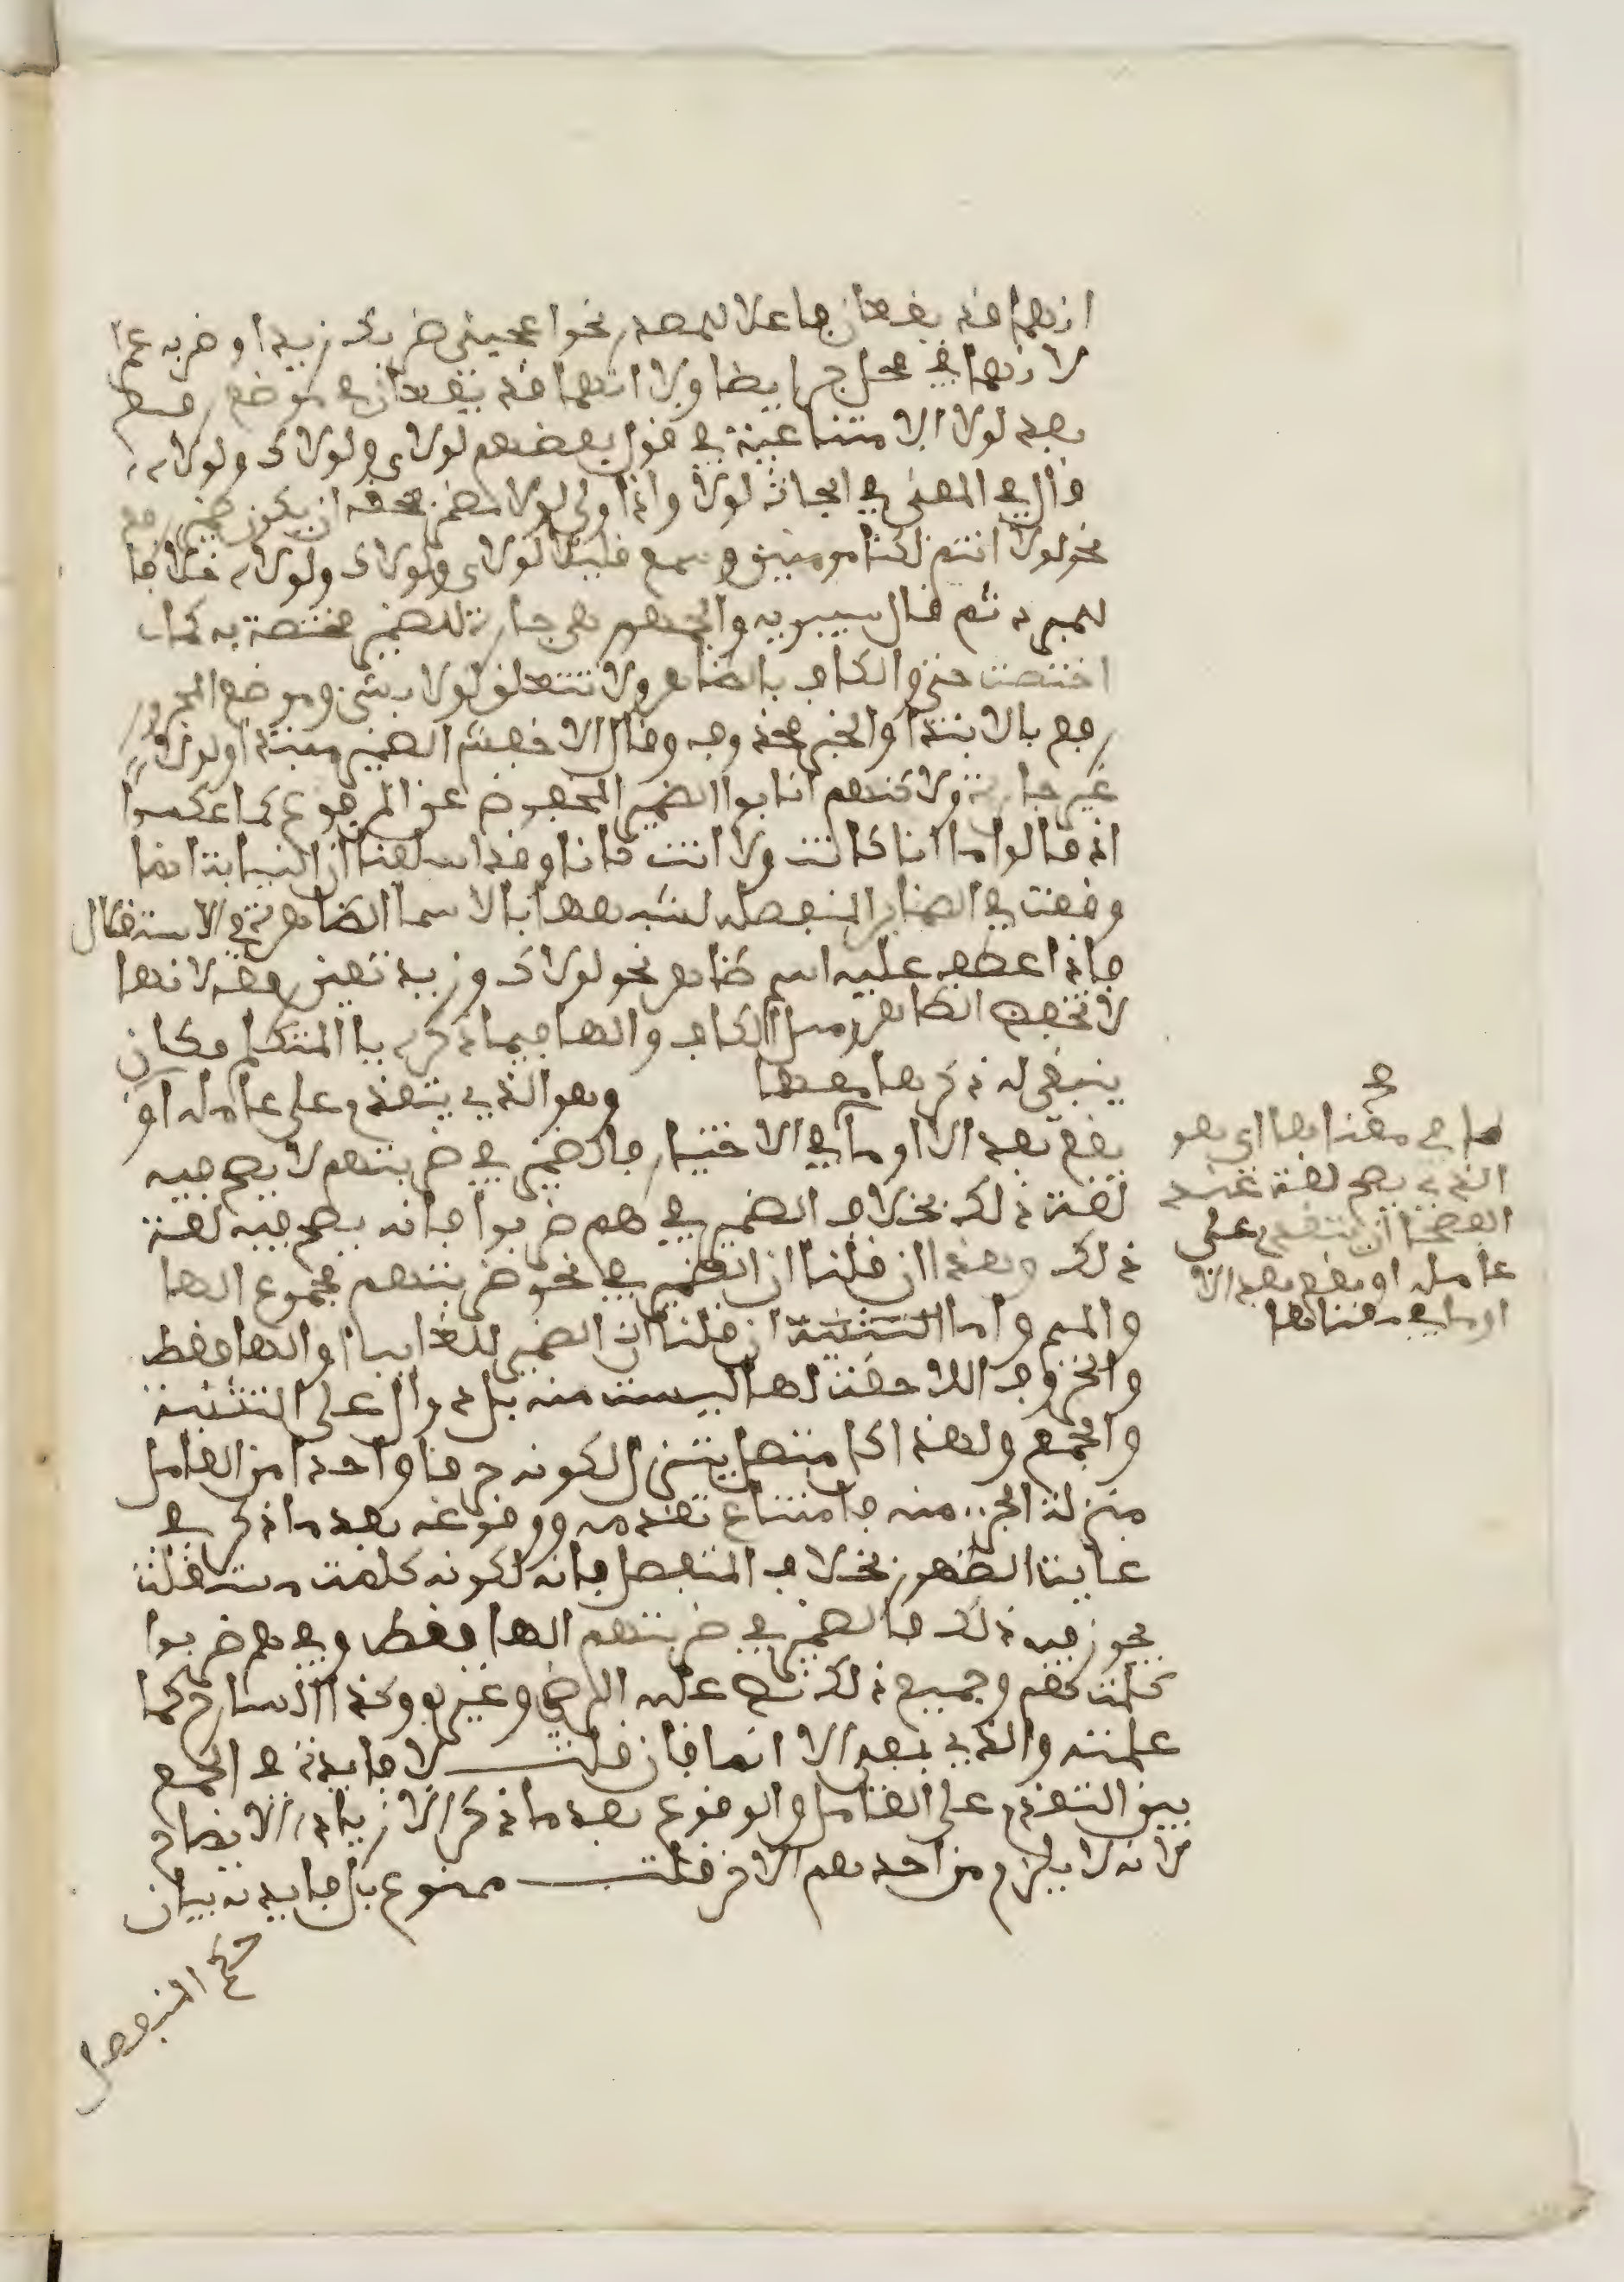 انهما قد يقعان فاعلا للمصدر نحو اعجبنى ضربك زيدا وضربه عمرا
لا انهما فى محل جر ايضا ولا انهما قد يقعان فى موضع رفع
بعد لولا الامتناعية فى قول بعضهم لولاى ولولاك ولولاه
قال فى المغنى فى ابحاث لولا واذا ولى لولا مضمر فحقه ان يكون ضمير رفع
نحو لولا انتم لكنا مومنين وسمع قليلا لولاى ولولاك ولولاه خلافا
للمبرد ثم قال سيبويه والجمهور هى جارة للضمير مختصة به كما
اختصت حتى والكاف بالظاهر ولا تتعلق لولا بشىء وموضع المجرور
رفع بالابتدا والخبر محذوف وقال الاخفش الضمير مبتدا ولولا
غير جارة ولاكنهم انابوا الضمير المخفوض عن المرفوع كما عكسوا
اذ قالوا ما انا كانت ولا انت كانا وقد اسلفنا ان النيابة انما
وقعت فى الضماير المنفصلة لشبهها بالاسما الظاهرة فى الاستقلال
فاذا عطف عليه اسم ظاهر نحو لولاك وزيد تعين رفعه لانها
لا تخفض الظاهر ومثل الكاف والها فيما ذكر يا المتكلم فكان
ينبغى له ذكرها معها وهو الذى يتقدم على عامله او
يقع بعد الا او ما فى الاختيار فالضمير فى ضربتهم لا يصح فيه
لغة ذلك بخلاف الضمير فى هم ضربوا فانه يصح فيه لغة
ذلك وهذا ان قلنا ان الضمير فى نحو ضربتهم مجموع الها
والميم واما التثنية ان قلنا ان الضمير للغايب او الها فقط
والحروف اللاحقة لها ليست منه بل دوال على التثنية
والجمع ولهذا كل منهما يتنزل لكونه حرفا واحدا من العامل
منزلة الجزء منه فامتناع تقدمه ووقوعه بعد ما ذكر فى
غاية الظهور بخلاف المنفصل فانه لكونه كلمة مستقلة
يجوز فيه ذلك فالضمير فى ضربتهم الها فقط وفى هم ضربوا
كلمة هم وجميع ذلك نص عليه الرضى وغيره وكذا الشارح كما
علمته والذى بعد الا انما فان قلت لا فايدة فى الجمع
بين التقدم على العامل والوقوع بعد ما ذكر الا زيادة الايضاح
لانه لا يلزم من احدهم الاخر قلت ممنوع بل فايدته بيان
حكم المنفصل
ما فى معناها اى هو
الذى يصح لغة عند
الفصحا ان يتقدم على
عامله او يقع بعد الا
او ما فى معناها